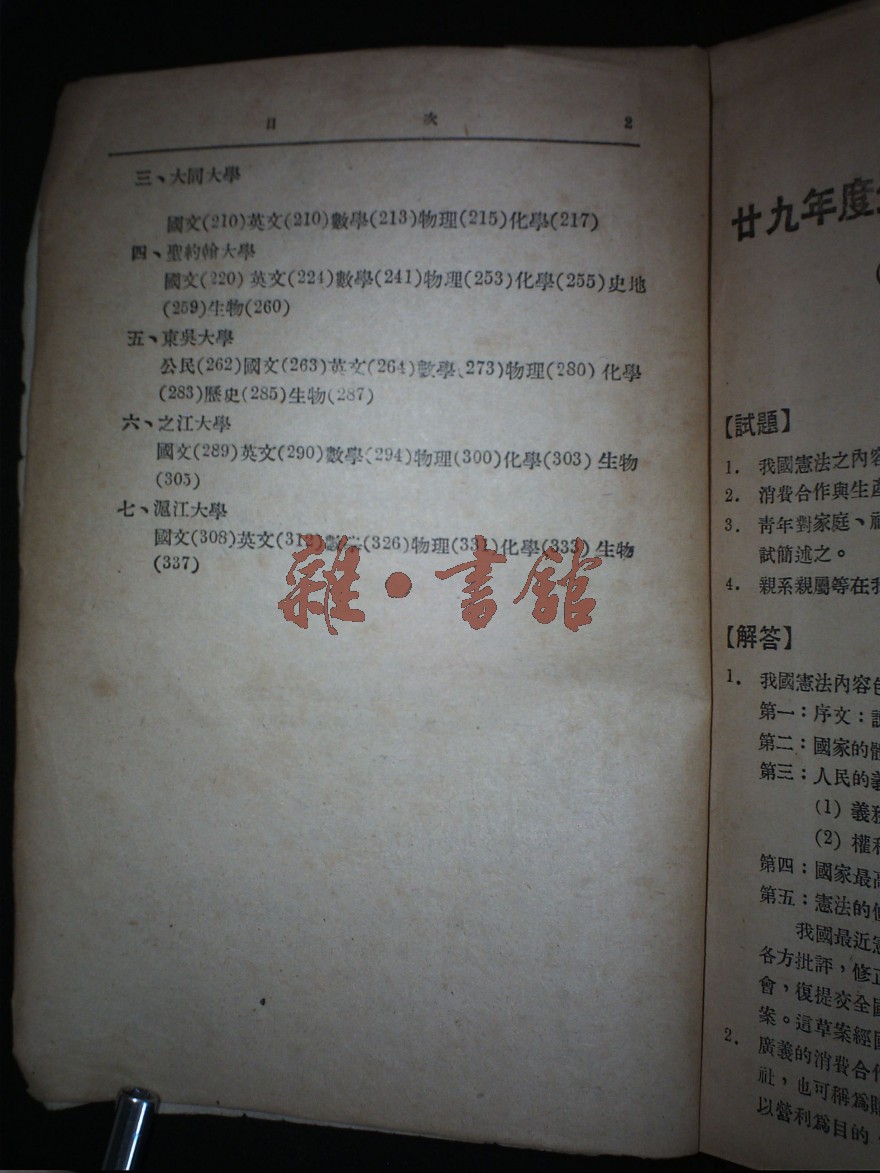 目 次 2
三、大同大學
國文(210)英文(210)數學(213)物理(215)化學(217)
四、聖約翰大學
國文(220)英文(224)數學(241)物理(253)化學(255)史地
(259)生物(260)
五、東吳大學
公民(262)國文(263)英文(264)數學(273)物理(280)化學
(283)歷史(285)生物(287)
六、之江大學
國文(289)英文(290)數學(294)物理(300)化學(303)生物
(305)
七、滬江大學
國文(308)英文(312)數學(326)物理(331)化學(333)生物
(337)
雜·書館
廿九年度
【試題】
1. 我國憲法之內容
2. 消費合作與生產
3. 青年對家庭、
試簡述之。
4. 親系親屬等在我
【解答】
1. 我國憲法內容包
第一：序文：
第二：國家的體
第三：人民的義
(1) 義務
(2) 權利
第四：國家最高
第五：憲法的修
我國最近憲
各方批評，修正
會，復提交全國
案。這草案經國
2. 廣義的消費合作
社，也可稱爲
以營利爲目的，